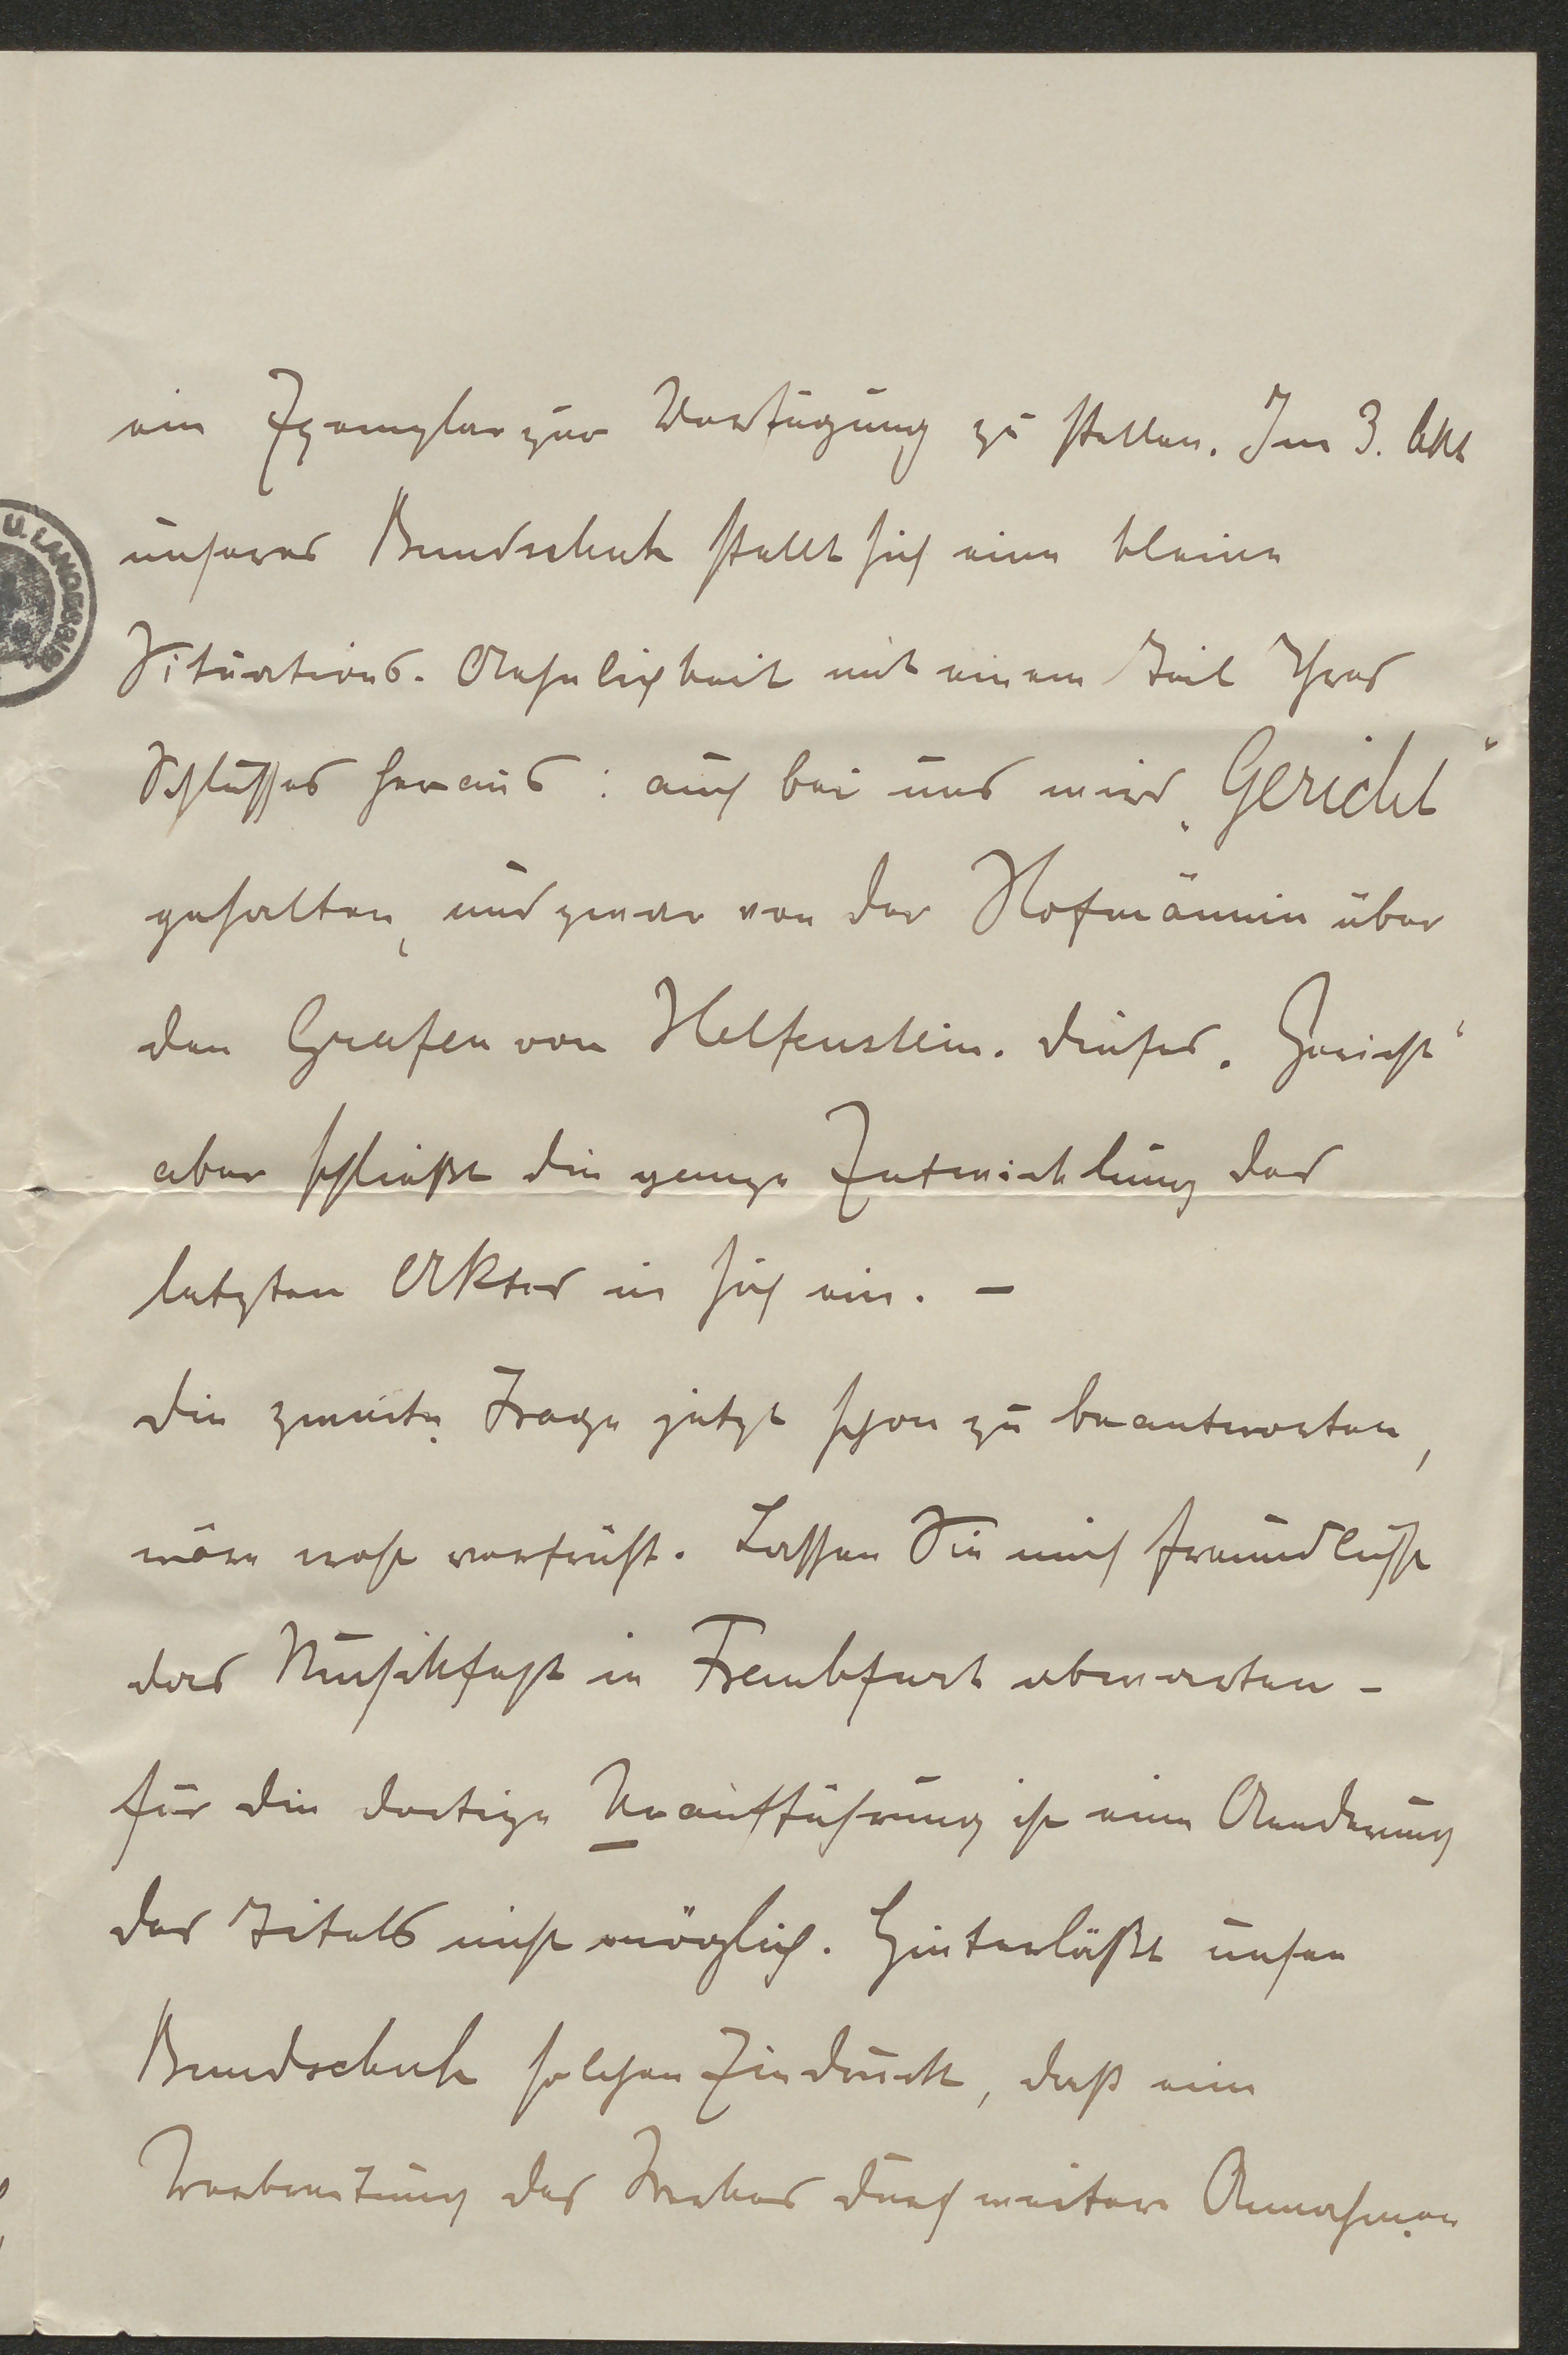 ein Exemplar zur Verfügung zu stellen. Im 3. Akt
unseres Bundschuh stellt sich eine kleine
Situations-Aehnlichkeit mit einem Teil Ihres
Schlusses heraus: auch bei uns wird „Gericht“
gehalten, und zwar von der Hofmännin über
den Grafen von Helfenstein. Dieses „Gericht“
aber schließt die ganze Entwicklung des
letzten Aktes in sich ein. –
Die zweite Frage jetzt schon zu beantworten,
wäre wohl verfrüht. Lassen Sie mich freundlichst
das Musikfest in Frankfurt abwarten –
für die dortige Uraufführung ist eine Aenderung
des Titels nicht möglich. Hinterläßt unser
Bundschuh solchen Eindruck, daß eine
Verbreitung des Werkes durch weitere Annahmen
U. LANDESBIB